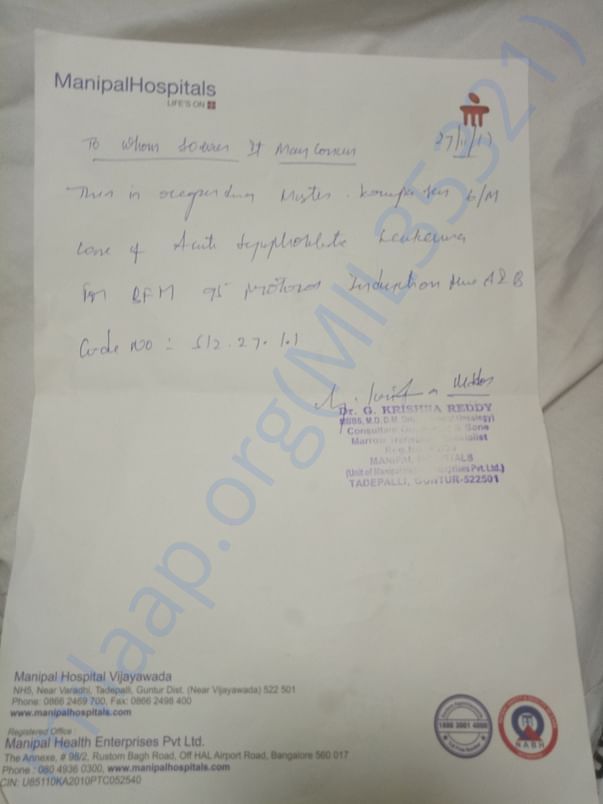 ManipalHospitals
LIFE'S ON
To Whom It May Concern
27/11/17
This is Master 6/M
Case of Acute Lymphoblastic Leukemia
for BFM 95 protocol Induction A & B
Code No: S12.27.1.1
Dr. G. KRISHNA REDDY
MBBS, M.D, D.M,
Consultant & Bone
Marrow
MANIPAL HOSPITALS
(Unit of Pvt.Ltd.)
TADEPALLI, GUNTUR-522501
Milaap.org(MIL353321)
Manipal Hospital Vijayawada
NH5, Near Varadhi, Tadepalli, Guntur Dist. (Near Vijayawada) 522 501
Phone: 0866 2469 700, Fax: 0866 2498 400
www.manipalhospitals.com
Registered Office :
Manipal Health Enterprises Pvt Ltd.
The Annexe, # 98/2, Rustom Bagh Road, Off HAL Airport Road, Bangalore 560 017
Phone : 080 4936 0300, www.manipalhospitals.com
CIN: U85110KA2010PTC052540
NABH